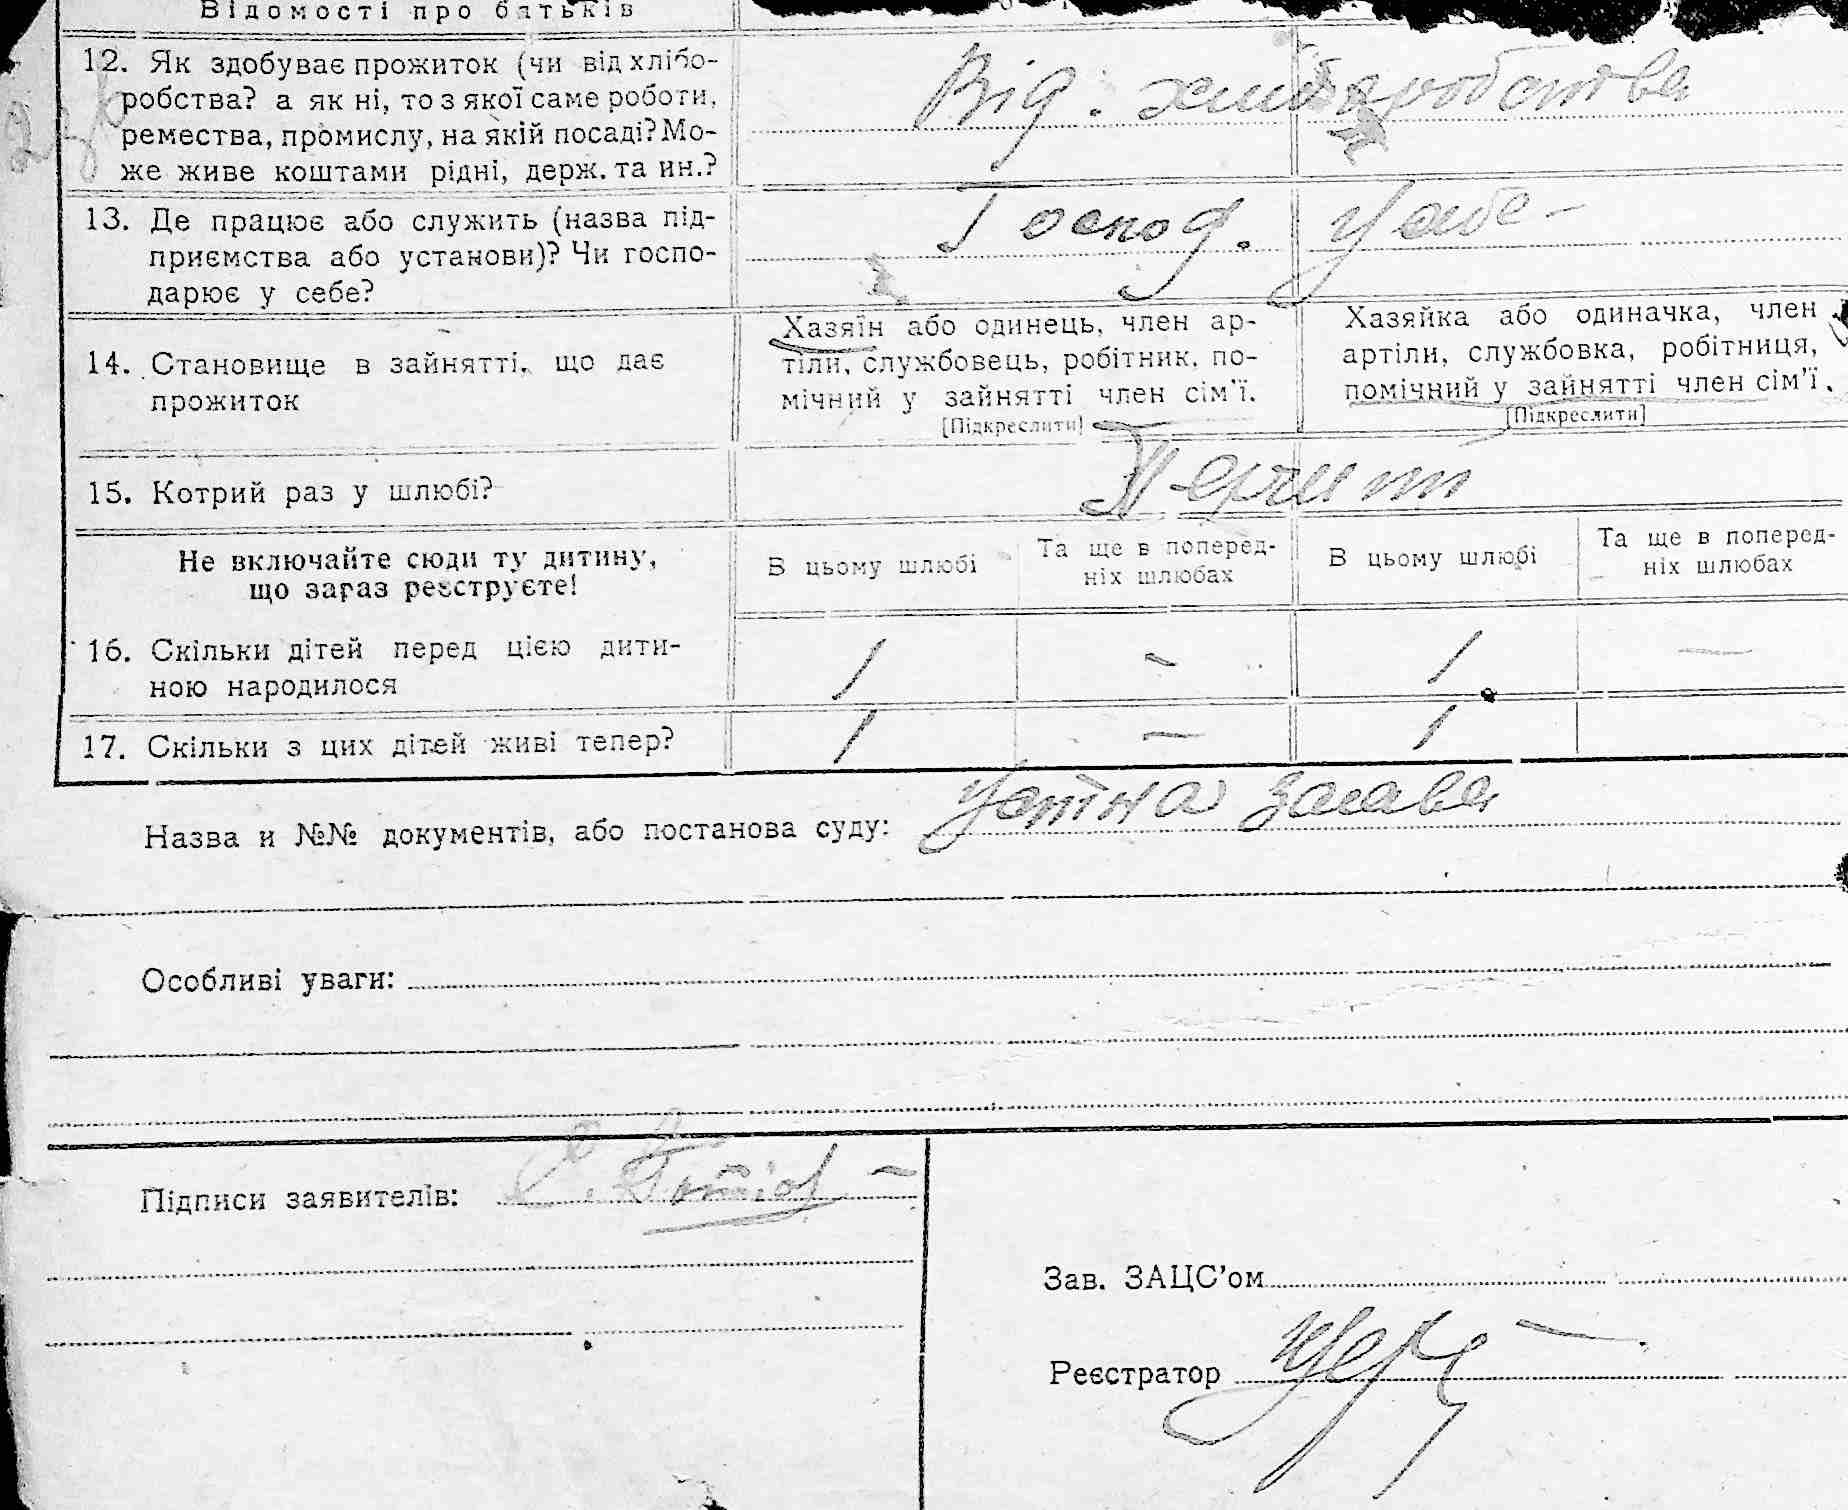 Відомості про батьків
12. Як здобуває прожиток (чи від хлібо-
робства? а як ні, то з якої саме роботи,
ремества, промислу, на якій посаді? Мо-
же живе коштами рідні, держ. та ин.?
Від. хліборобства
13. Де працює або служить (назва під-
приємства або установи)? Чи госпо-
дарює у себе?
Господ. у себе
14. Становище в зайнятті, що дає
прожиток
Хазяїн або одинець, член ар-
тіли, службовець, робітник, по-
мічний у зайнятті член сім'ї.
[Підкреслити]
Хазяйка або одиначка, член
артіли, службовка, робітниця,
помічний у зайнятті член сім'ї.
[Підкреслити]
15. Котрий раз у шлюбі?
Не включайте сюди ту дитину,
що зараз реєструєте!
В цьому шлюбі
Та ще в поперед-
ніх шлюбах
В цьому шлюбі
Та ще в поперед-
ніх шлюбах
16. Скільки дітей перед цією дити-
ною народилося
1 - 1 —
17. Скільки з цих дітей живі тепер?
1 — 1
Назва и №№ документів, або постанова суду: Устна заява
Особливі уваги:
Підписи заявителів:
Зав. ЗАЦС'ом
Реєстратор